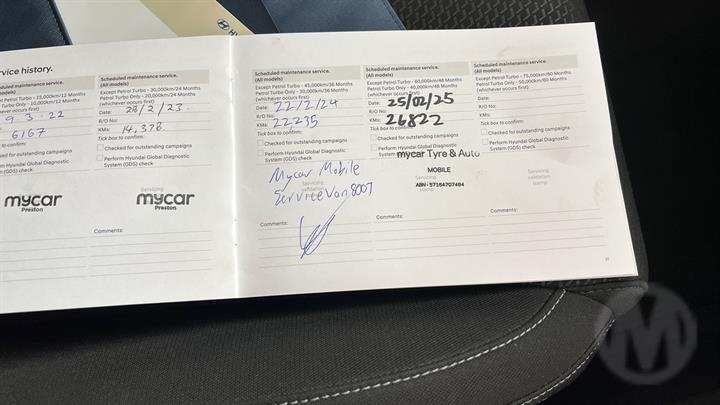 HY
service history.
Scheduled maintenance service.
(All models)
Except Petrol Turbo - 15,000km/12 Months
Petrol Turbo Only - 10,000km/12 Months
(whichever occurs first)
9.3.22
6167
Tick box to confirm:
Checked for outstanding campaigns
Perform Hyundai Global Diagnostic
System (GDS) check
Servicing
mycar
Preston
Comments:
Scheduled maintenance service.
(All models)
Except Petrol Turbo - 30,000km/24 Months
Petrol Turbo Only - 20,000km/24 Months
(whichever occurs first)
Date: 28/2/23.
R/O No:
KMs: 14,378.
Tick box to confirm:
Checked for outstanding campaigns
Perform Hyundai Global Diagnostic
System (GDS) check
Servicing
mycar
Preston
Comments:
Scheduled maintenance service.
(All models)
Except Petrol Turbo - 45,000km/36 Months
Petrol Turbo Only - 30,000km/36 Months
(whichever occurs first)
Date: 22/2/24
R/O No:
KMs: 22235
Tick box to confirm:
Checked for outstanding campaigns
Perform Hyundai Global Diagnostic
System (GDS) check
Mycar Mobile
Servicing
validation
Service Van 8007
Comments:
Scheduled maintenance service.
(All models)
Except Petrol Turbo - 60,000km/48 Months
Petrol Turbo Only - 40,000km/48 Months
(whichever occurs first)
Date: 25/02/25
R/O No:
KMs: 26822
Tick box to confirm:
Checked for outstanding campaigns
Perform Hyundai Global Diagnostic
System (GDS) check
mycar Tyre & Auto
MOBILE
Servicing
ABN - 57164707404
stamp
Comments:
Scheduled maintenance service.
(All models)
Except Petrol Turbo - 75,000km/60 Months
Petrol Turbo Only - 50,000km/60 Months
(whichever occurs first)
Date:
R/O No:
KMs:
Tick box to confirm:
Checked for outstanding campaigns
Perform Hyundai Global Diagnostic
System (GDS) check
Servicing
validation
stamp
Comments:
M